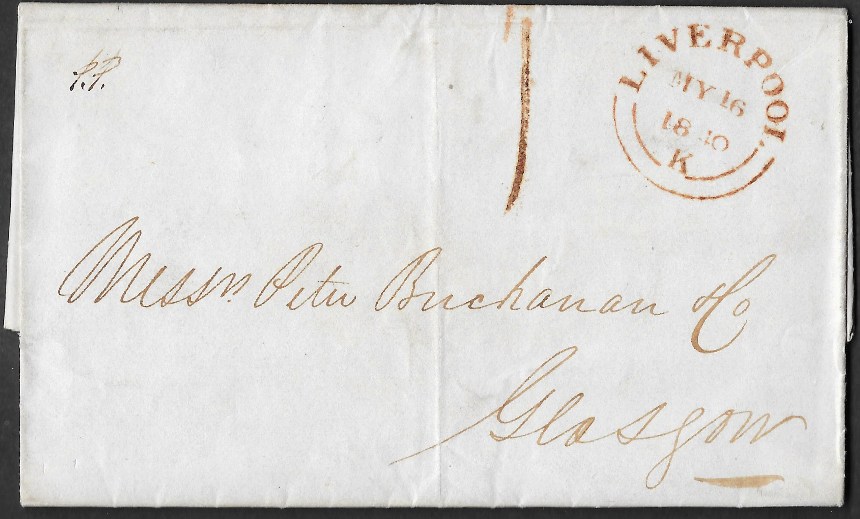 P.P.
1
LIVERPOOL
MY 16
1840
K
Messrs Peter Buchanan & Co
Glasgow